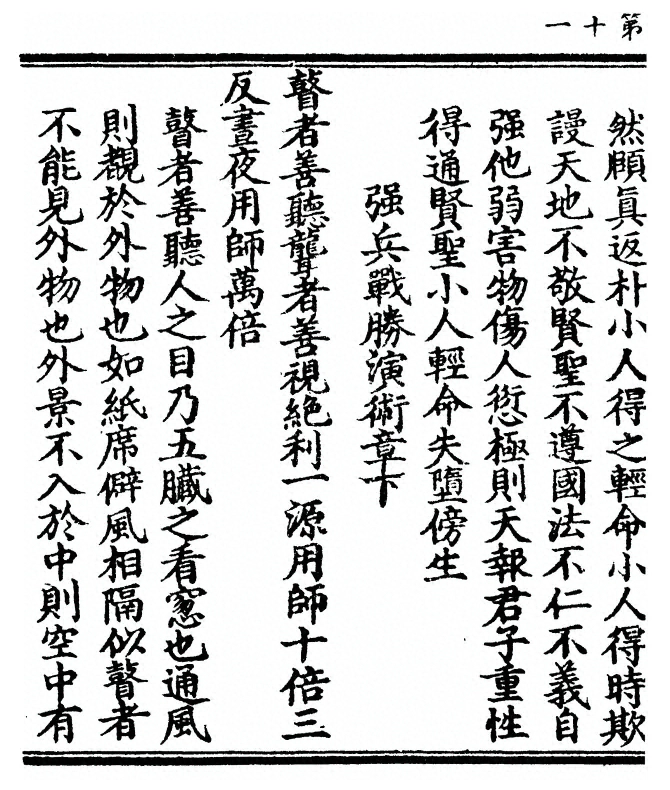 第十一
然頤真返朴小人得之輕命小人得時欺
謾天地不敬賢聖不遵國法不仁不義自
强他弱害物傷人愆極則天報君子重性
得通賢聖小人輕命失墮傍生
强兵戰勝演術章下
瞽者善聽聾者善視絕利一源用師十倍三
反晝夜用師萬倍
瞽者善聽人之目乃五臟之看窓也通風
則觀於外物也如紙席僻風相隔似瞽者
不能見外物也外景不入於中則空中有